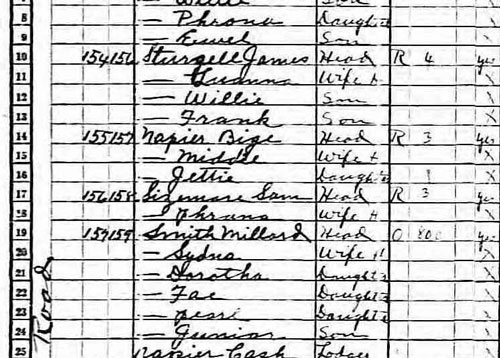 8 — Phrona Daught
9 — Fewel Son
10 154 156 Sturgell James Head R 4 yes
11 — Wife H
12 — Willie Son
13 — Frank Son
14 155 157 Napier Bige Head R 3 yes
15 — Middle Wife
16 — Jettie Daught
17 156 158 Sizemore Sam Head R 3 yes
18 — Phrona Wife H
19 159 Smith Millard Head O 800 yes
20 — Sydna Wife H
21 — Dorotha Daught
22 — Fae Daught
23 — Daught
24 — Junior Son
25 Napier Cash Lodger
Road